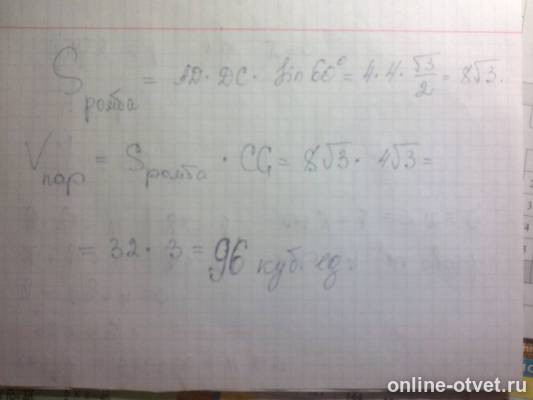 S ромба = AD · DC · Sin 60° = 4 · 4 · √3/2 = 8√3.
V пар = S ромба · CC₁ = 8√3 · 4√3 =
= 32 · 3 = 96 куб. ед.
online-otvet.ru